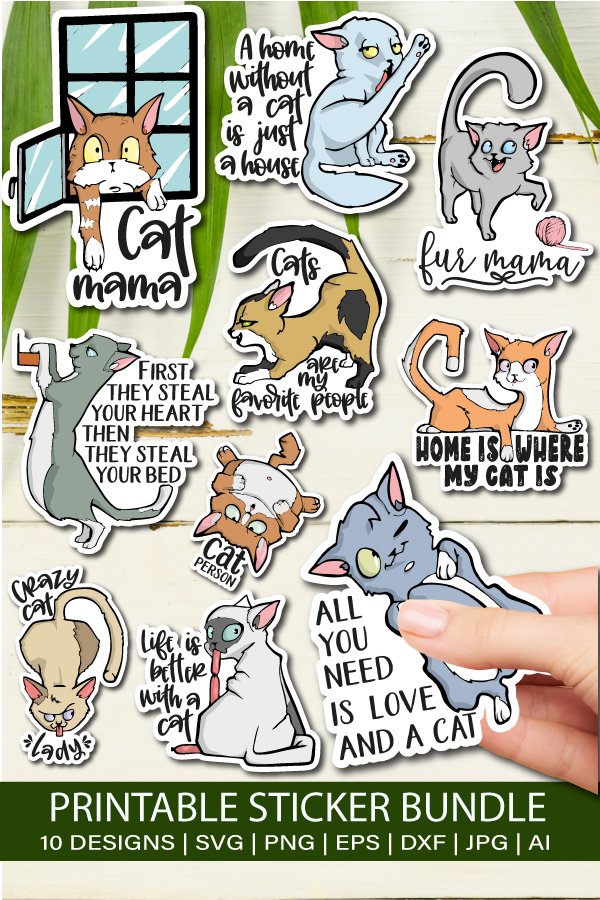 Cat
mama
A home
without
a cat
is just
a house
fur mama
Cats
are
my
favorite people
FIRST
THEY STEAL
YOUR HEART
THEN
THEY STEAL
YOUR BED
HOME IS WHERE
MY CAT IS
Cat
PERSON
Crazy
cat
lady
Life is
better
with a
cat
ALL
YOU
NEED
IS LOVE
AND A CAT
PRINTABLE STICKER BUNDLE
10 DESIGNS | SVG | PNG | EPS | DXF | JPG | AI